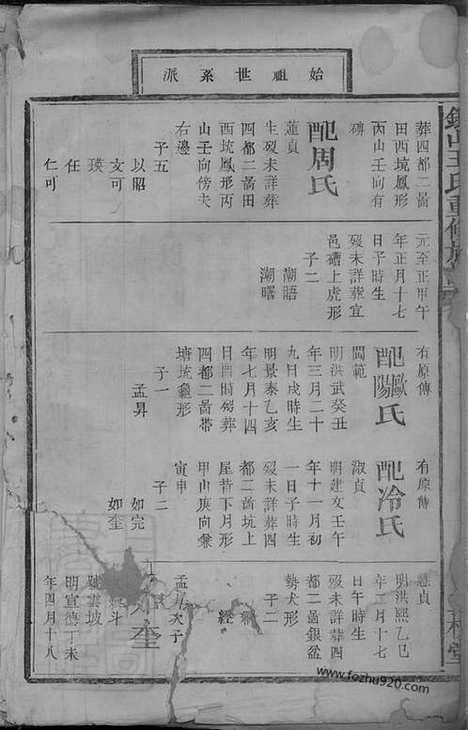 始祖世系派
葬四都二啚
田西坑鳳形
丙山壬向有
碑
配周氏
蓮貞
生歿未詳葬
四都二啚田
西坑鳳形丙
山壬向傍夫
右邊
子五
以昭
文可
瑛
任
仁可
元至正甲午
年正月十七
日子時生
歿未詳葬宜
邑礌上虎形
子二
瀚晤
瀚曙
有原傳
配歐陽氏
閫範
明洪武癸丑
年三月二十
九日戌時生
明景泰乙亥
年七月十四
日酉時歿葬
四都二啚帶
塘坑龜形
子一
孟昇
有原傳
配冷氏
淑貞
明建文壬午
年十一月初
一日子時生
歿未詳葬四
都二啚坑上
屋背下月形
甲山庚向兼
寅申
子二
如完
如奎
慈貞
明洪熙乙巳
年二月十七
日午時生
歿未詳葬四
都二啚銀盆
勢犬形
子二
經
孟昇次子
奎
明宣德丁未
年四月十八
www.fozhu920.com